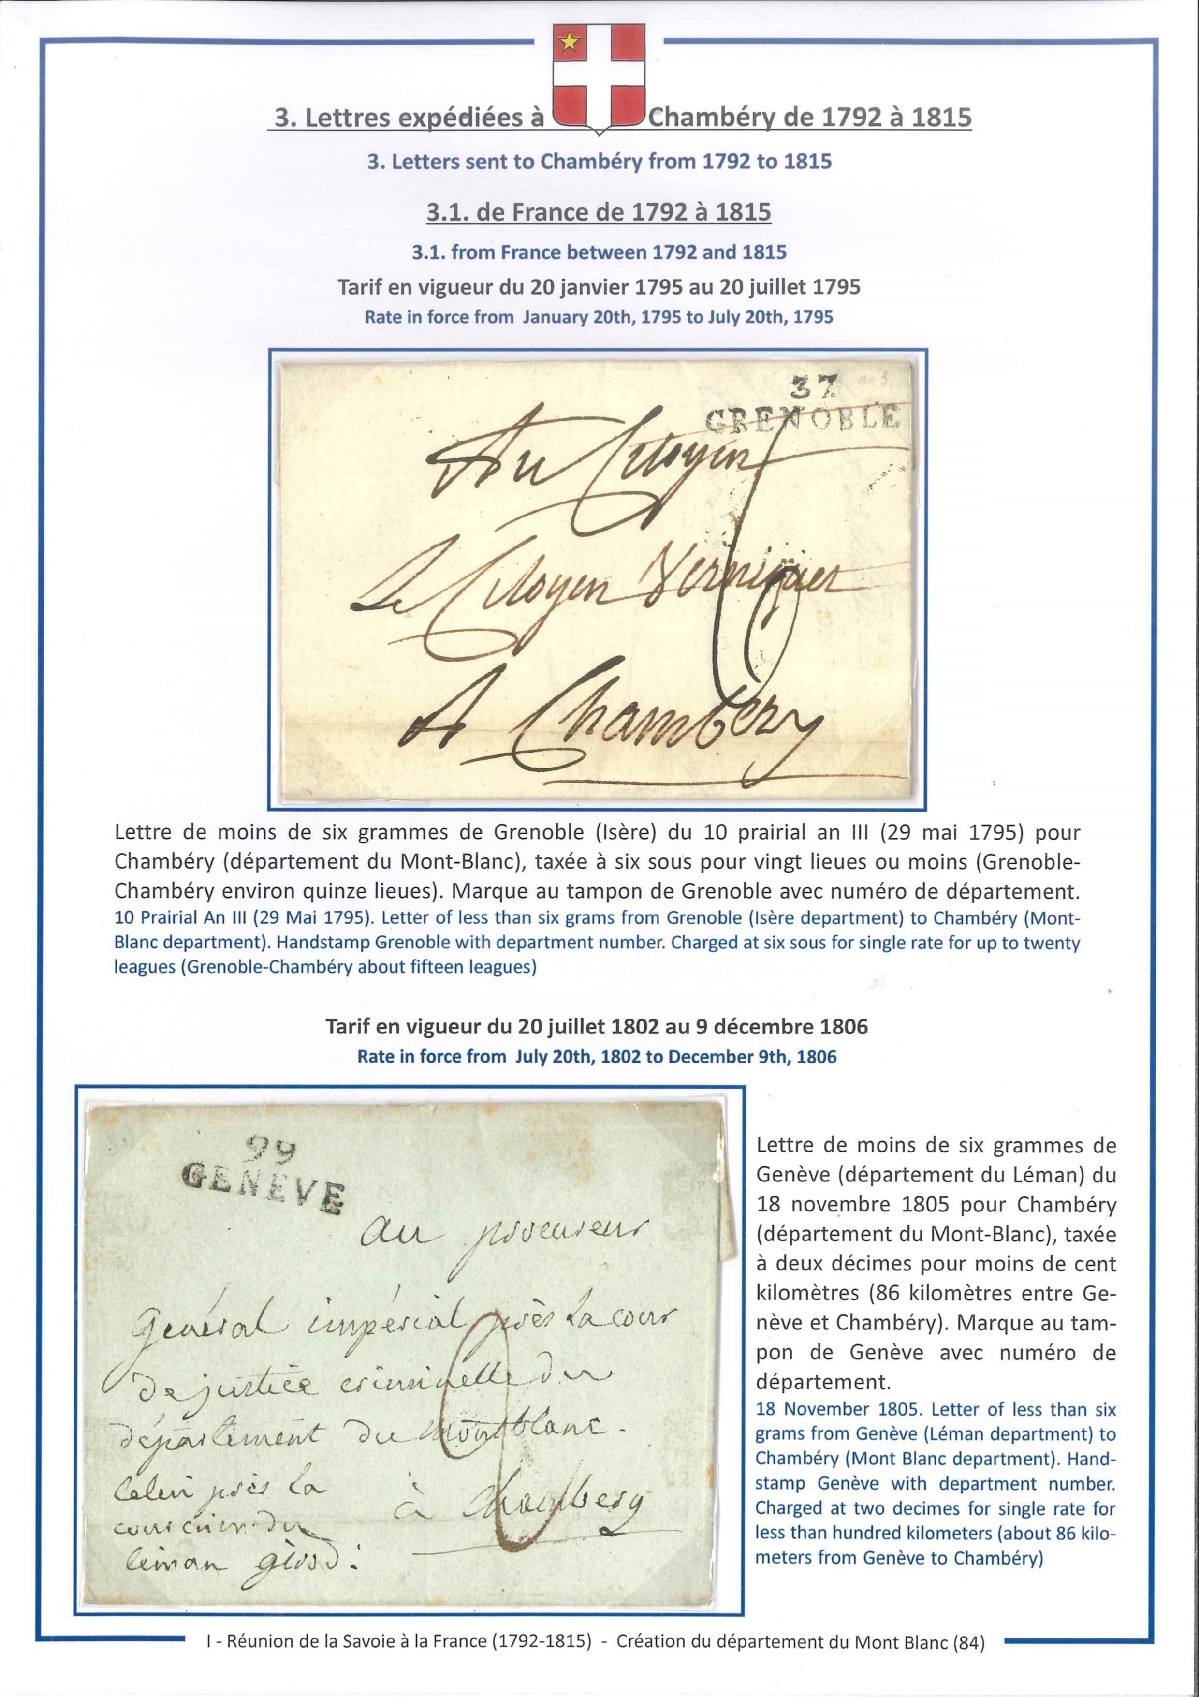 3. Lettres expédiées à Chambéry de 1792 à 1815
3. Letters sent to Chambéry from 1792 to 1815
3.1. de France de 1792 à 1815
3.1. from France between 1792 and 1815
Tarif en vigueur du 20 janvier 1795 au 20 juillet 1795
Rate in force from January 20th, 1795 to July 20th, 1795
37
GRENOBLE
Au Citoyen
Le Citoyen
A Chambéry
Lettre de moins de six grammes de Grenoble (Isère) du 10 prairial an III (29 mai 1795) pour
Chambéry (département du Mont-Blanc), taxée à six sous pour vingt lieues ou moins (Grenoble-
Chambéry environ quinze lieues). Marque au tampon de Grenoble avec numéro de département.
10 Prairial An III (29 Mai 1795). Letter of less than six grams from Grenoble (Isère department) to Chambéry (Mont-
Blanc department). Handstamp Grenoble with department number. Charged at six sous for single rate for up to twenty
leagues (Grenoble-Chambéry about fifteen leagues)
Tarif en vigueur du 20 juillet 1802 au 9 décembre 1806
Rate in force from July 20th, 1802 to December 9th, 1806
99
GENEVE
au procureur
Général impérial près la cour
de justice criminelle du
département du montblanc.
à Chambery
celui près la
cour crim. du
léman girod:
2
Lettre de moins de six grammes de
Genève (département du Léman) du
18 novembre 1805 pour Chambéry
(département du Mont-Blanc), taxée
à deux décimes pour moins de cent
kilomètres (86 kilomètres entre Ge-
nève et Chambéry). Marque au tam-
pon de Genève avec numéro de
département.
18 November 1805. Letter of less than six
grams from Genève (Léman department) to
Chambéry (Mont Blanc department). Hand-
stamp Genève with department number.
Charged at two decimes for single rate for
less than hundred kilometers (about 86 kilo-
meters from Genève to Chambéry)
I - Réunion de la Savoie à la France (1792-1815) - Création du département du Mont Blanc (84)